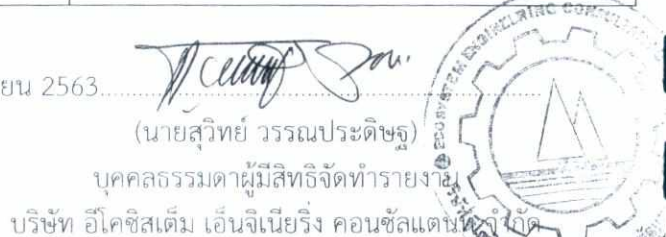 ยน 2563
(นายสุวิทย์ วรรณประดิษฐ)
บุคคลธรรมดาผู้มีสิทธิจัดทำรายงาน
บริษัท อีโคซิสเต็ม เอ็นจิเนียริ่ง คอนซัลแตนท์ จำกัด
ECOSYSTEM ENGINEERING CONSULTANT